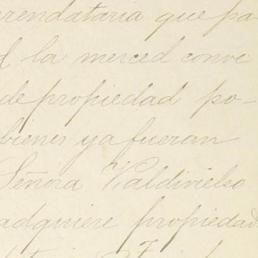 arrendataria que pa
la merced conve
de propiedad po-
bienes ya fueran
Señora Valdivielso
adquiere propiedad